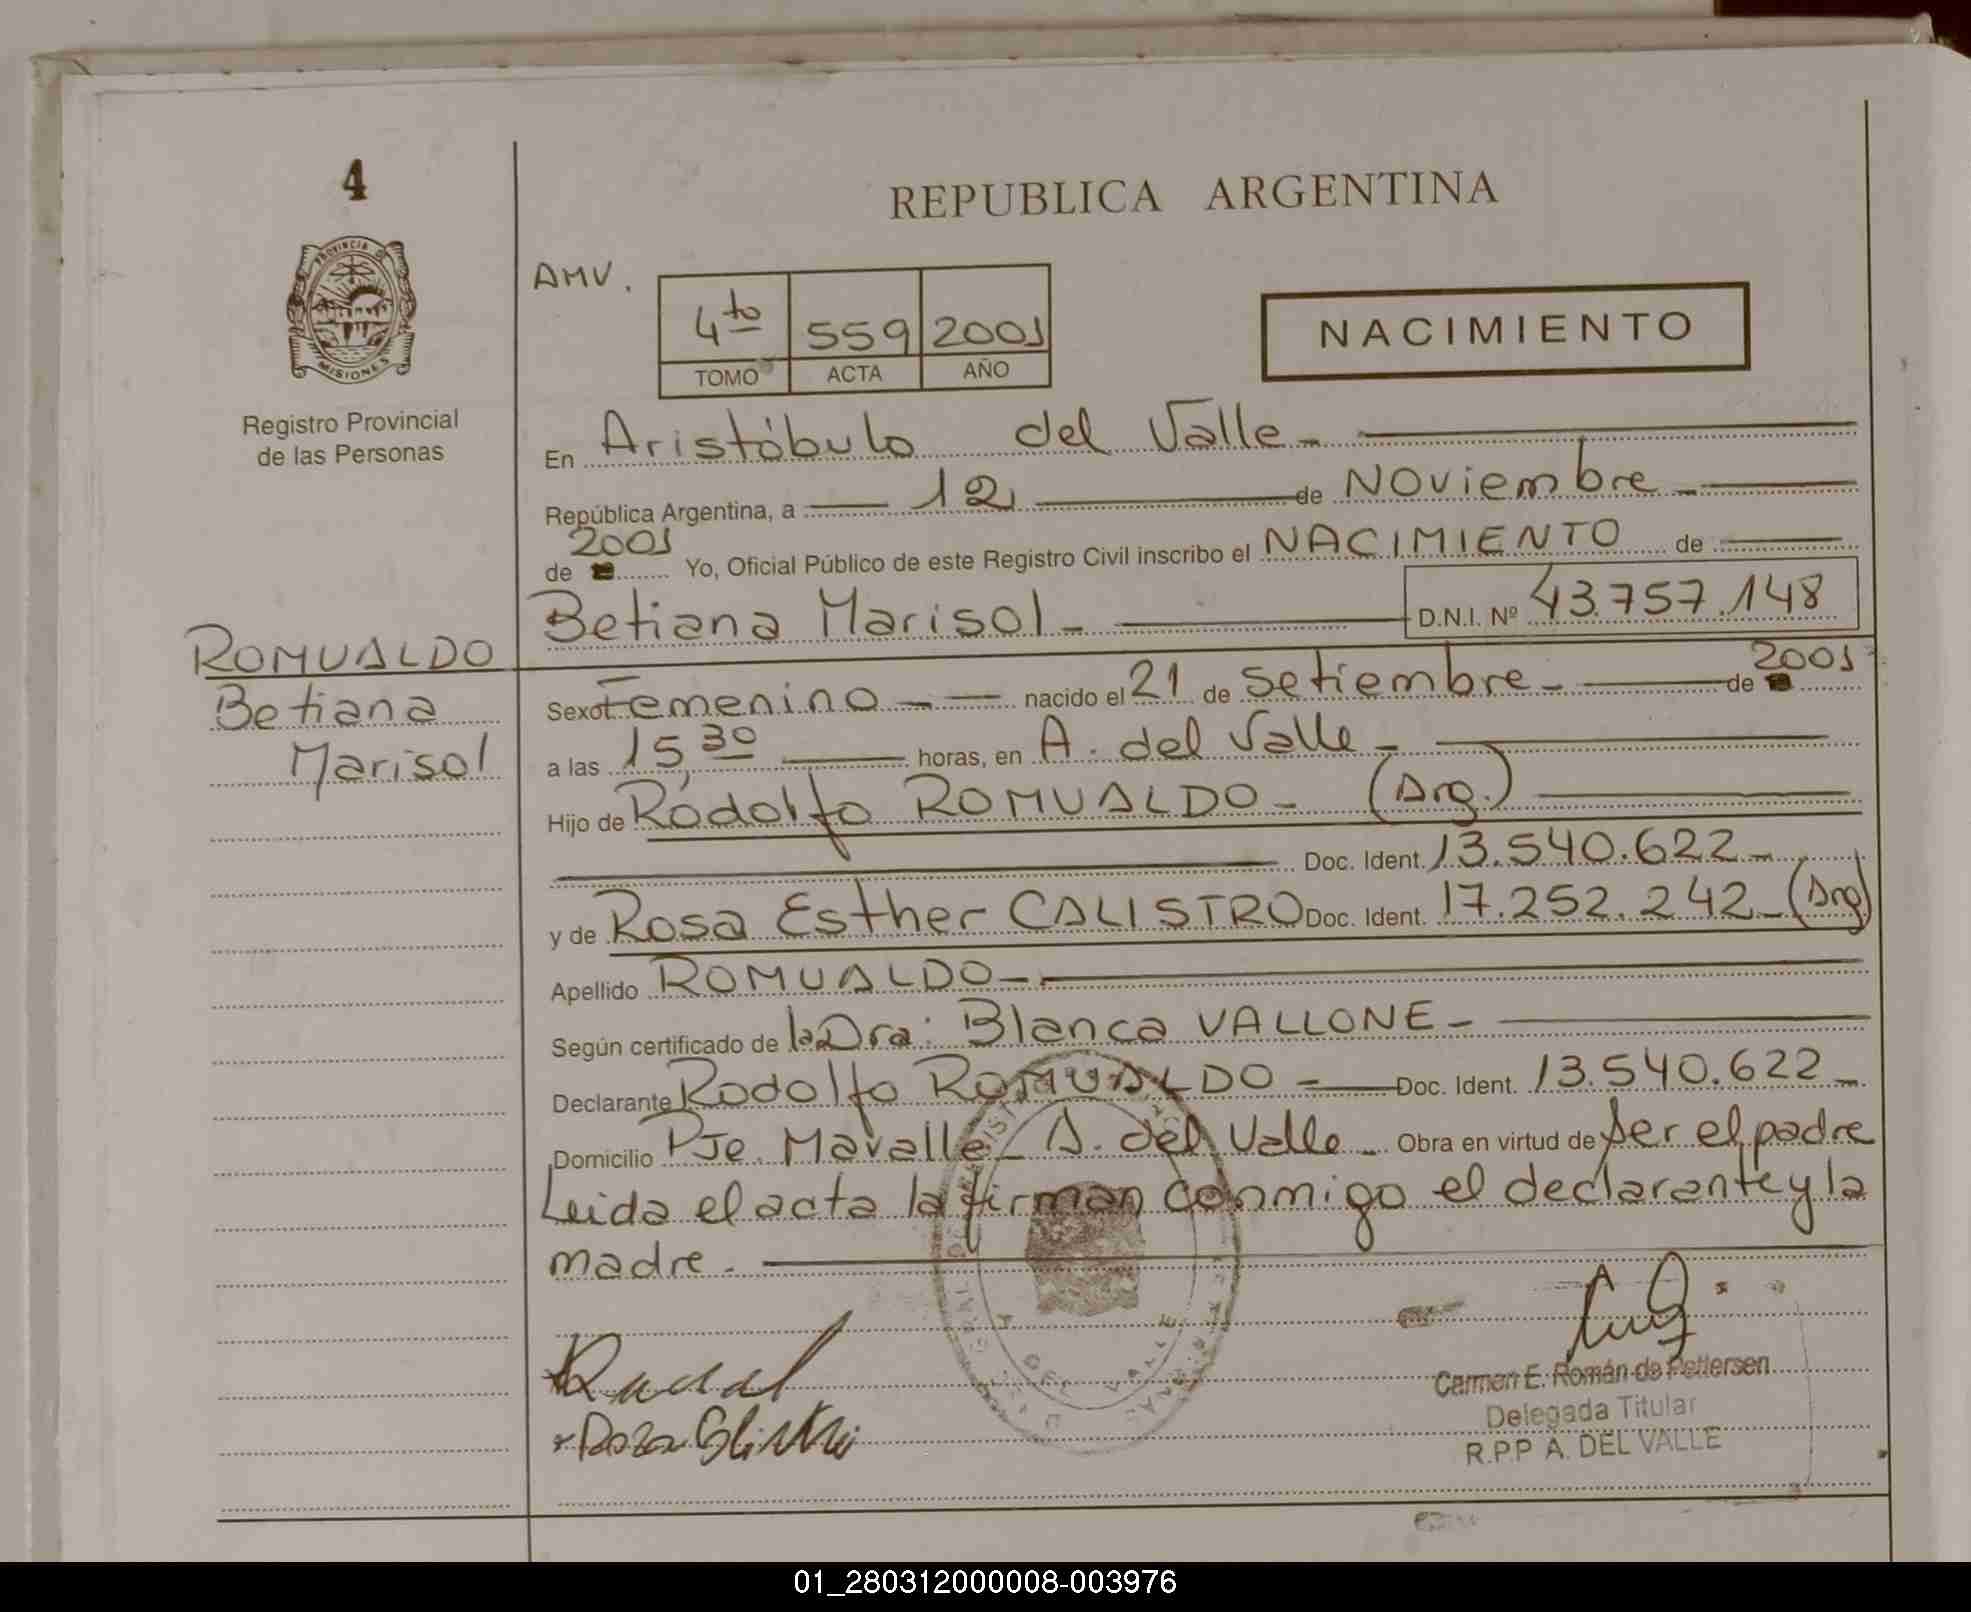 4
PROVINCIA
MISIONES
Registro Provincial
de las Personas
REPUBLICA ARGENTINA
AMV.
4to 559 2001
TOMO ACTA AÑO
NACIMIENTO
En Aristóbulo del Valle -
República Argentina, a 12 de Noviembre -
2001
de Yo, Oficial Público de este Registro Civil inscribo el NACIMIENTO de
Betiana Marisol - D.N.I. Nº 43.757.148
ROMUALDO
Betiana
Marisol
Sexo Femenino - nacido el 21 de Setiembre - de 2001
a las 15,30 horas, en A. del Valle -
Hijo de Rodolfo ROMUALDO - (Arg.)
Doc. Ident. 13.540.622 -
y de Rosa Esther CALISTRO Doc. Ident. 17.252.242 - (Arg)
Apellido ROMUALDO -
Según certificado de la Dra: Blanca VALLONE -
Declarante Rodolfo ROMUALDO - Doc. Ident. 13.540.622 -
Domicilio Pje. Mavalle - A. del Valle - Obra en virtud de ser el padre
Leida el acta la firman conmigo el declarante y la
madre -
Carmen E. Román de Pettersen
Delegada Titular
R.P.P A. DEL VALLE
A. DEL VALLE
01_280312000008-003976